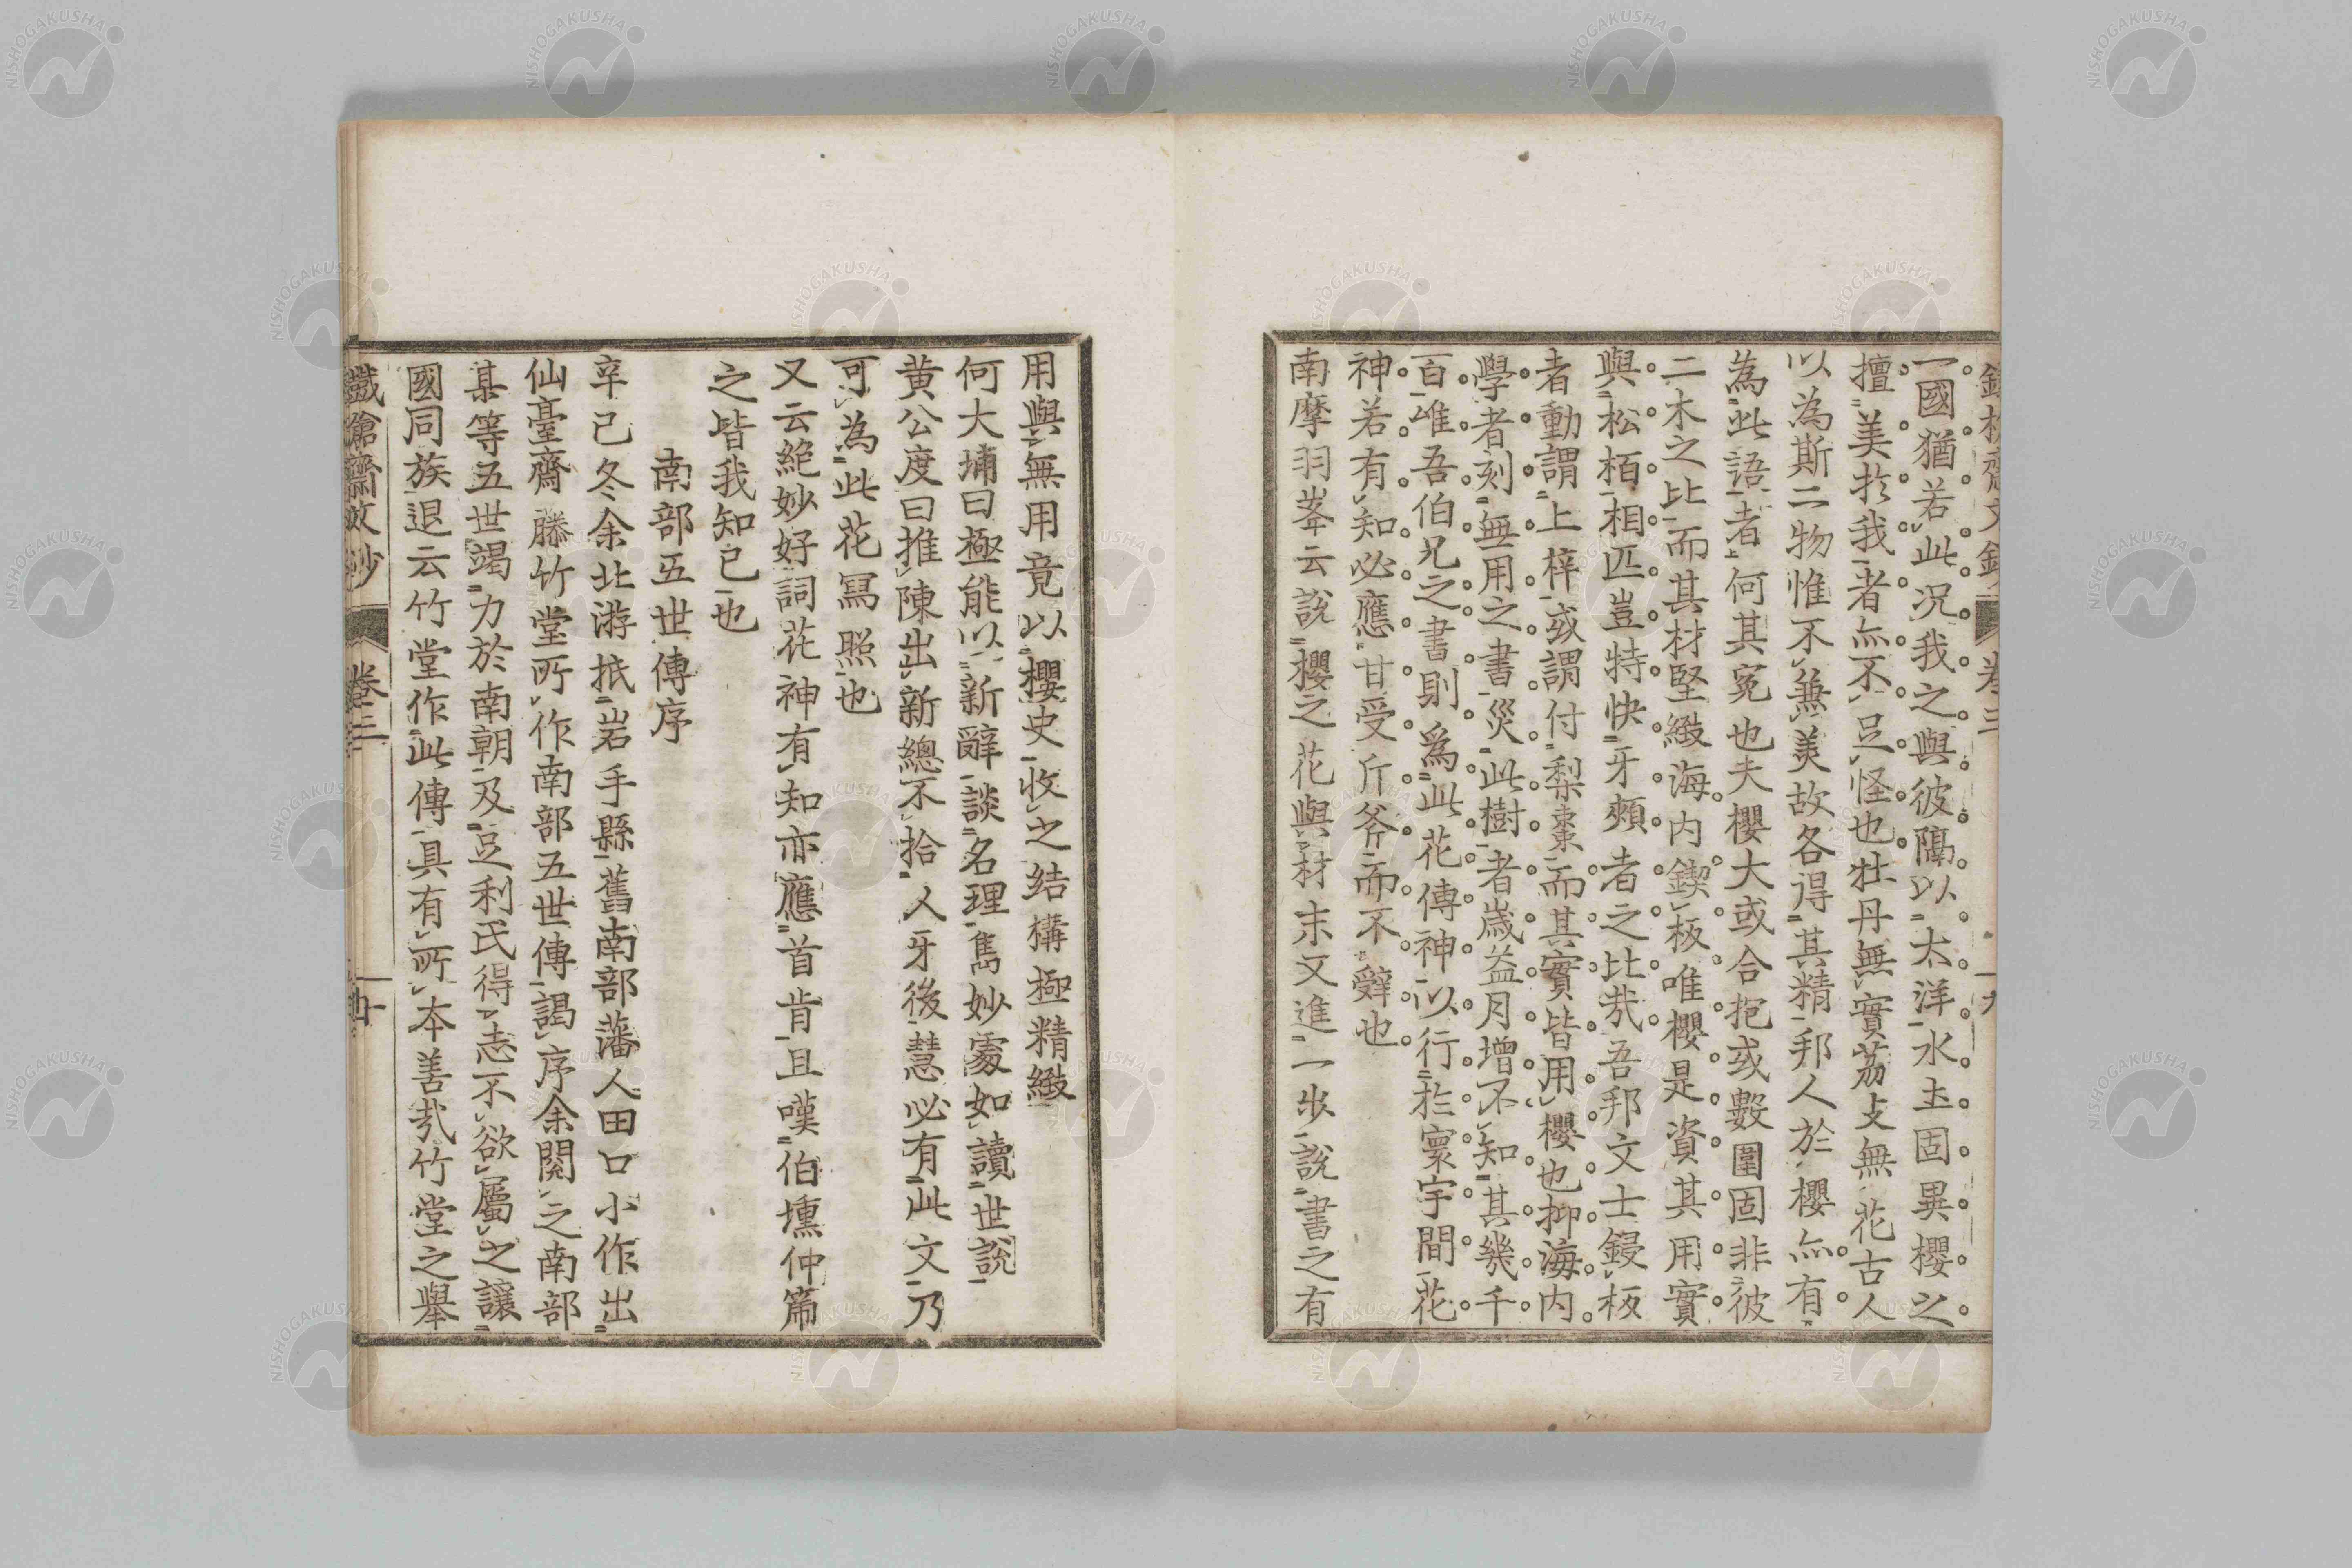 一國猶若此况我之與彼隔以太洋水土固異櫻之
擅美於我者亦不足怪也牡丹無實荔支無花古人
以為斯二物惟不兼美故各得其精邦人於櫻亦有
為此語者何其冤也夫櫻大或合抱或數圍固非彼
二木之比而其材堅緻海内鍥板唯櫻是資其用實
與松栢相匹豈特快牙頰者之比哉吾邦文士鋟板
者動謂上梓或謂付梨棗而其實皆用櫻也抑海内
學者刻無用之書災此樹者歳益月增不知其幾千
百唯吾伯兄之書則爲此花傳神以行於寰宇間花
神若有知必應甘受斤爷而不辭也
南摩羽峯云説櫻之花與材末文進一步説書之有
用與無用竟以櫻史收之結構極精緻
何大埔曰極能以新辭談名理雋妙處如讀世説
黄公度曰推陳出新總不拾人牙後慧必有此文乃
可為此花冩照也
又云絶妙好詞花神有知亦應首肯且嘆伯壎仲篪
之皆我知已也
南部五世傳序
辛己冬余北游抵岩手縣舊南部藩人田口小作出
仙臺齋藤竹堂所作南部五世傳謁序余閱之南部
某等五世竭力於南朝及足利氏得志不欲屬之讓
國同族退云竹堂作此傳具有所本善哉竹堂之舉
鐵槍齋文鈔 卷三 十九
鐵槍齋文鈔 卷三 二十